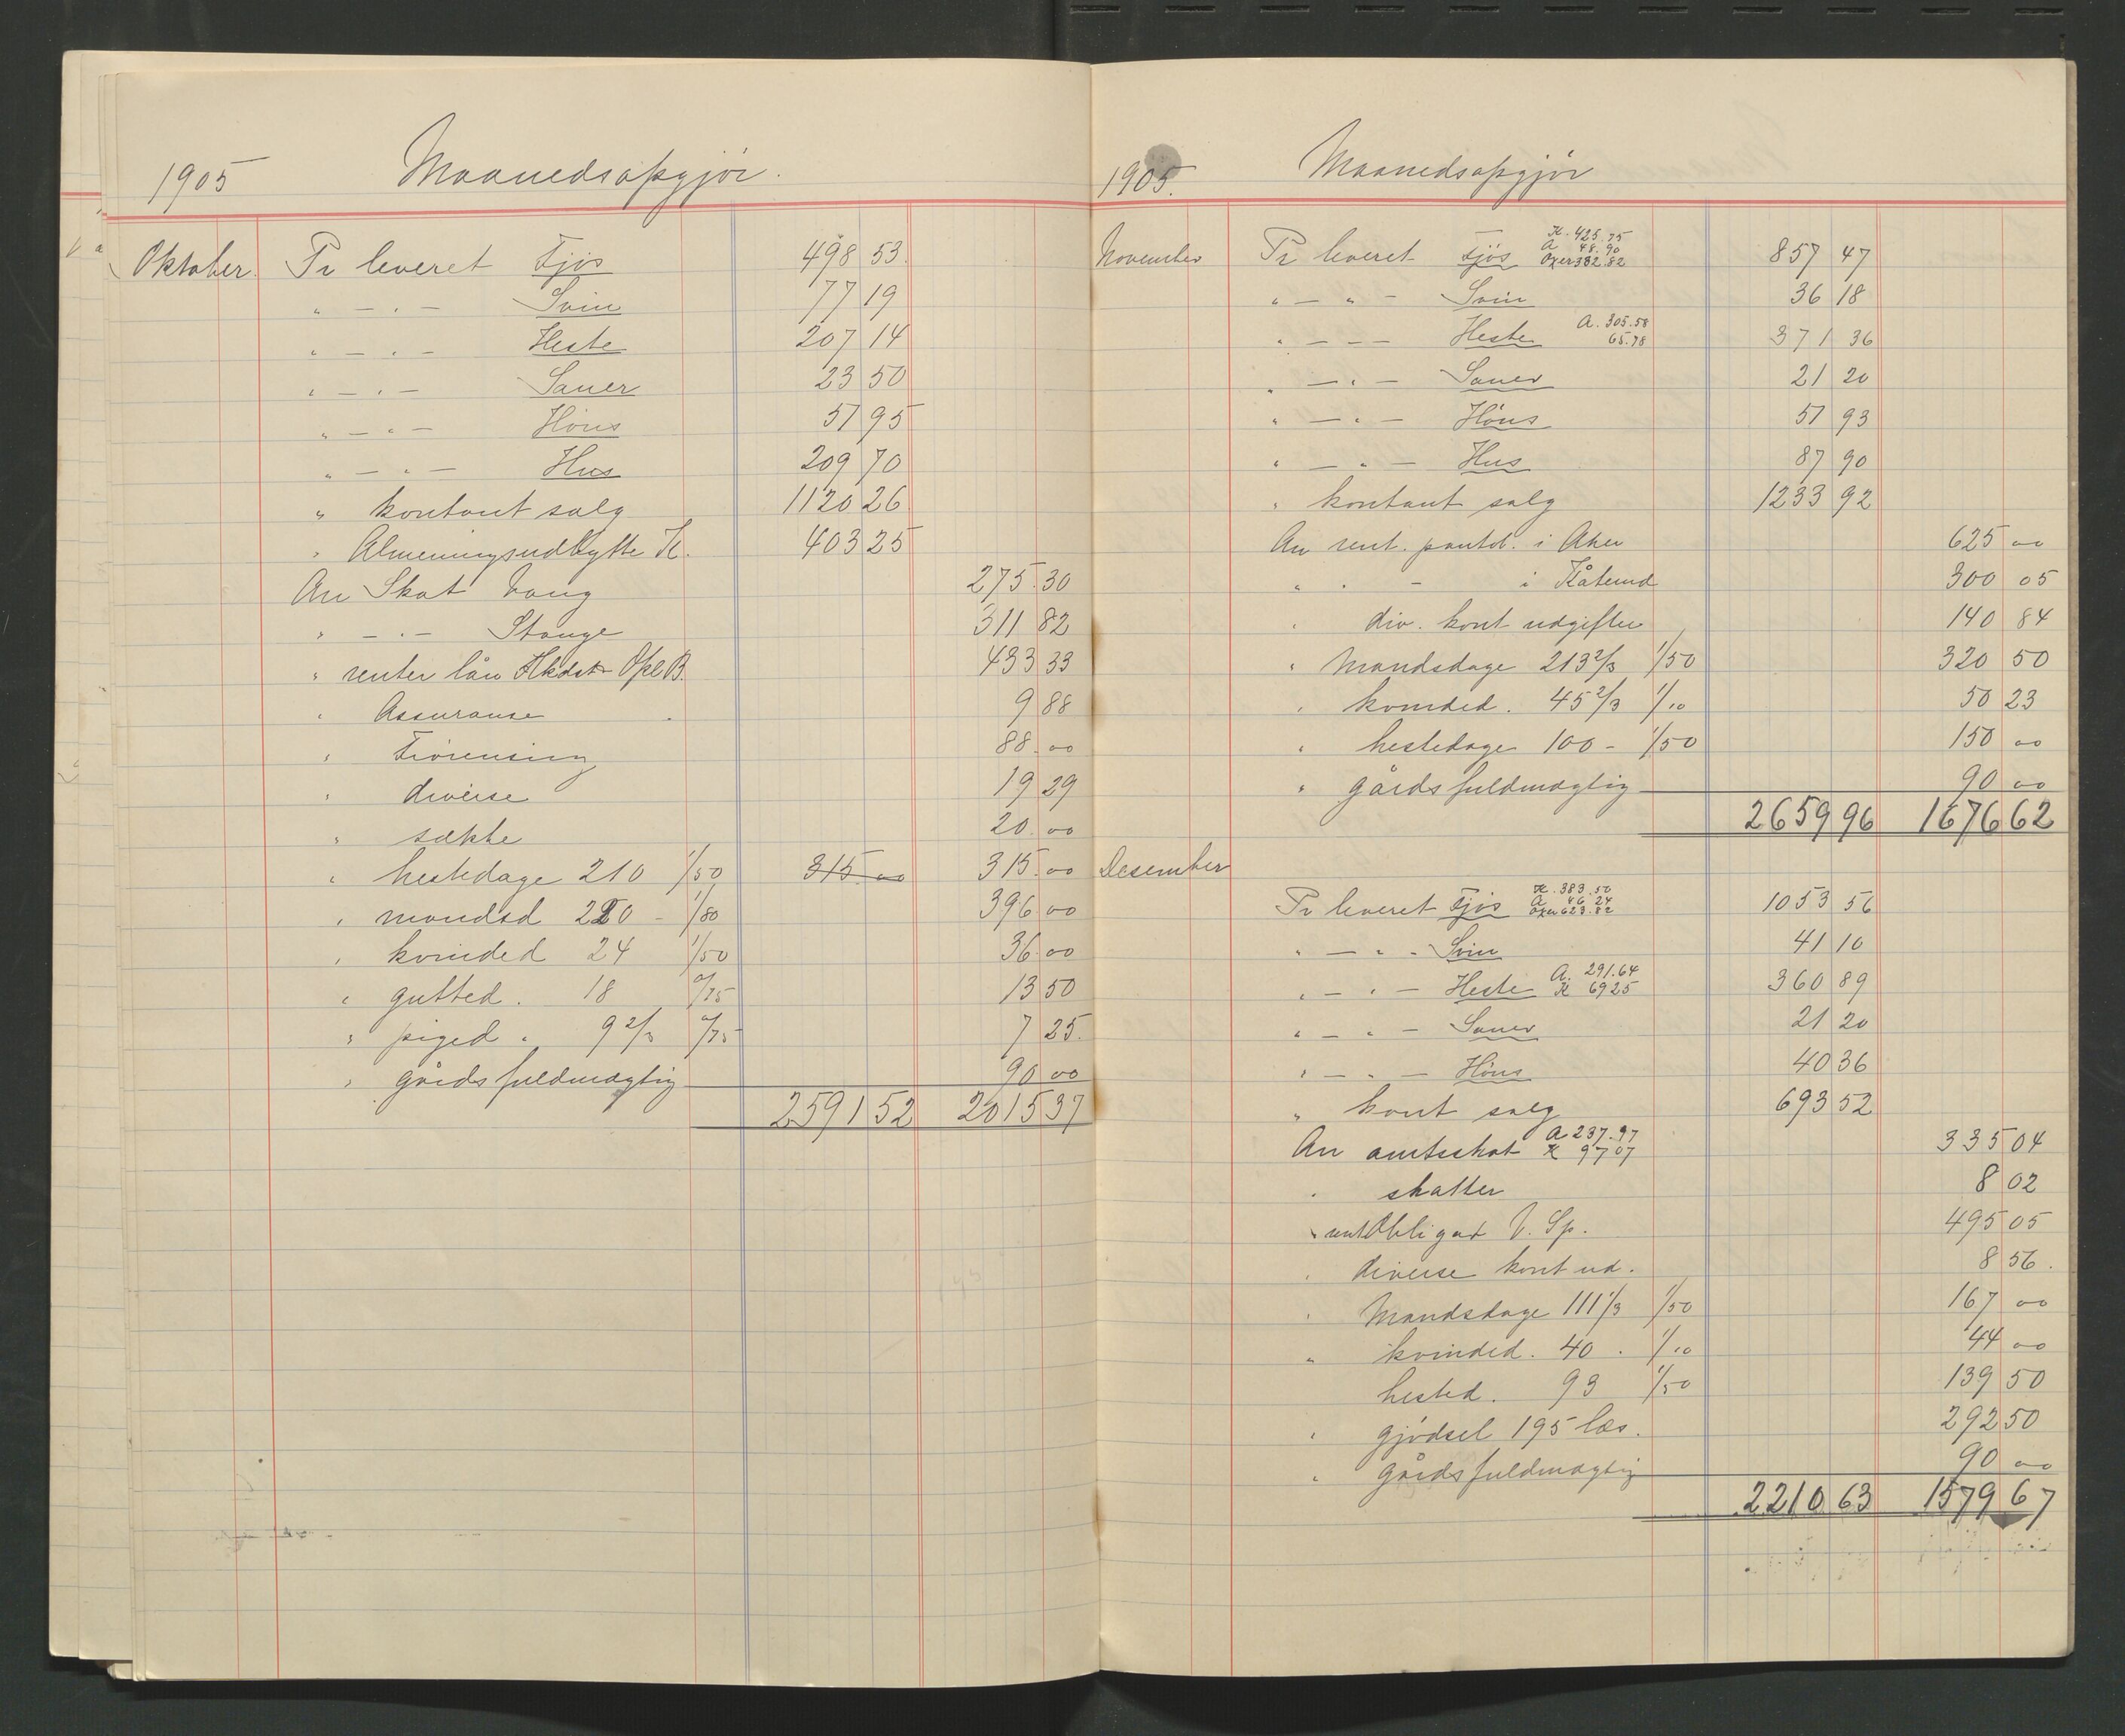 1905 Maanedsopgjör.
Oktober. Pr leveret Fjös 498 53
" - " - Svin 77 19
" - " - Heste 207 14
" - " - Sauer 23 50
" - " - Höns 51 95
" - " - Hus 209 70
" kontant salg 1120 26
" Almenningsudbytte K. 403 25
An Skat Vang 275.30
" - " - Stange 311 82
" renter lån Hkdst Opl B. 433 33
" Assuranse 9 88
" 88.00
" diverse 19 29
" sække 20.00
" hestedage 210 1/50 315.00 315.00
" mandsd 220 - 1/80 396 00
" kvinded 24 1/50 36.00
" gutted. 18 0/75 13 50
" piged. 9 2/3 0/75 7 25.
" gårdsfuldmægtig 90 00
2591 52 2015 37
1905. Maanedsopgjör
November Pr leveret Fjös K. 425.75 A 48.90 Oxer 382.82 857 47
" - " - Svin 36 18
" - - - Heste A. 305.58 65.78 371 36
" - " - Sauer 21 20
" - " - Höns 51 93
" - " - Hus 87 90
" kontant salg 1233 92
An rent. pantob. i Aker 625 00
" " - i Kåterud 300 05
" div. kont udgifter 140 84
" Mandsdage 213 2/3 1/50 320 50
" kvinded. 45 2/3 1/10 50 23
" hestedage 100 - 1/50 150 00
" gårdsfuldmægtig 90 00
2659 96 1676 62
Desember
Pr leveret Fjös K. 383.50 A 46 24 Oxer 623.82 1053 56
" - " - Svin 41 10
" - " - Heste A. 291.64 K 69 25 360 89
" - " - Sauer 21 20
" - " - Höns 40 36
" kont salg 693 52
An amtsskat A 237.97 K 97 07 335 04
" skatter 8 02
" rent Obligat V. Sp. 495 05
" diverse kont ud. 8 56.
" Mandsdage 111 1/3 1/50 167 00
" kvinded. 40. 1/10 44 00
hested. 93 1/50 139 50
" gjödsel 195 læs. 292 50
" gårdsfuldmægtig 90 00
2210 63 1579 67